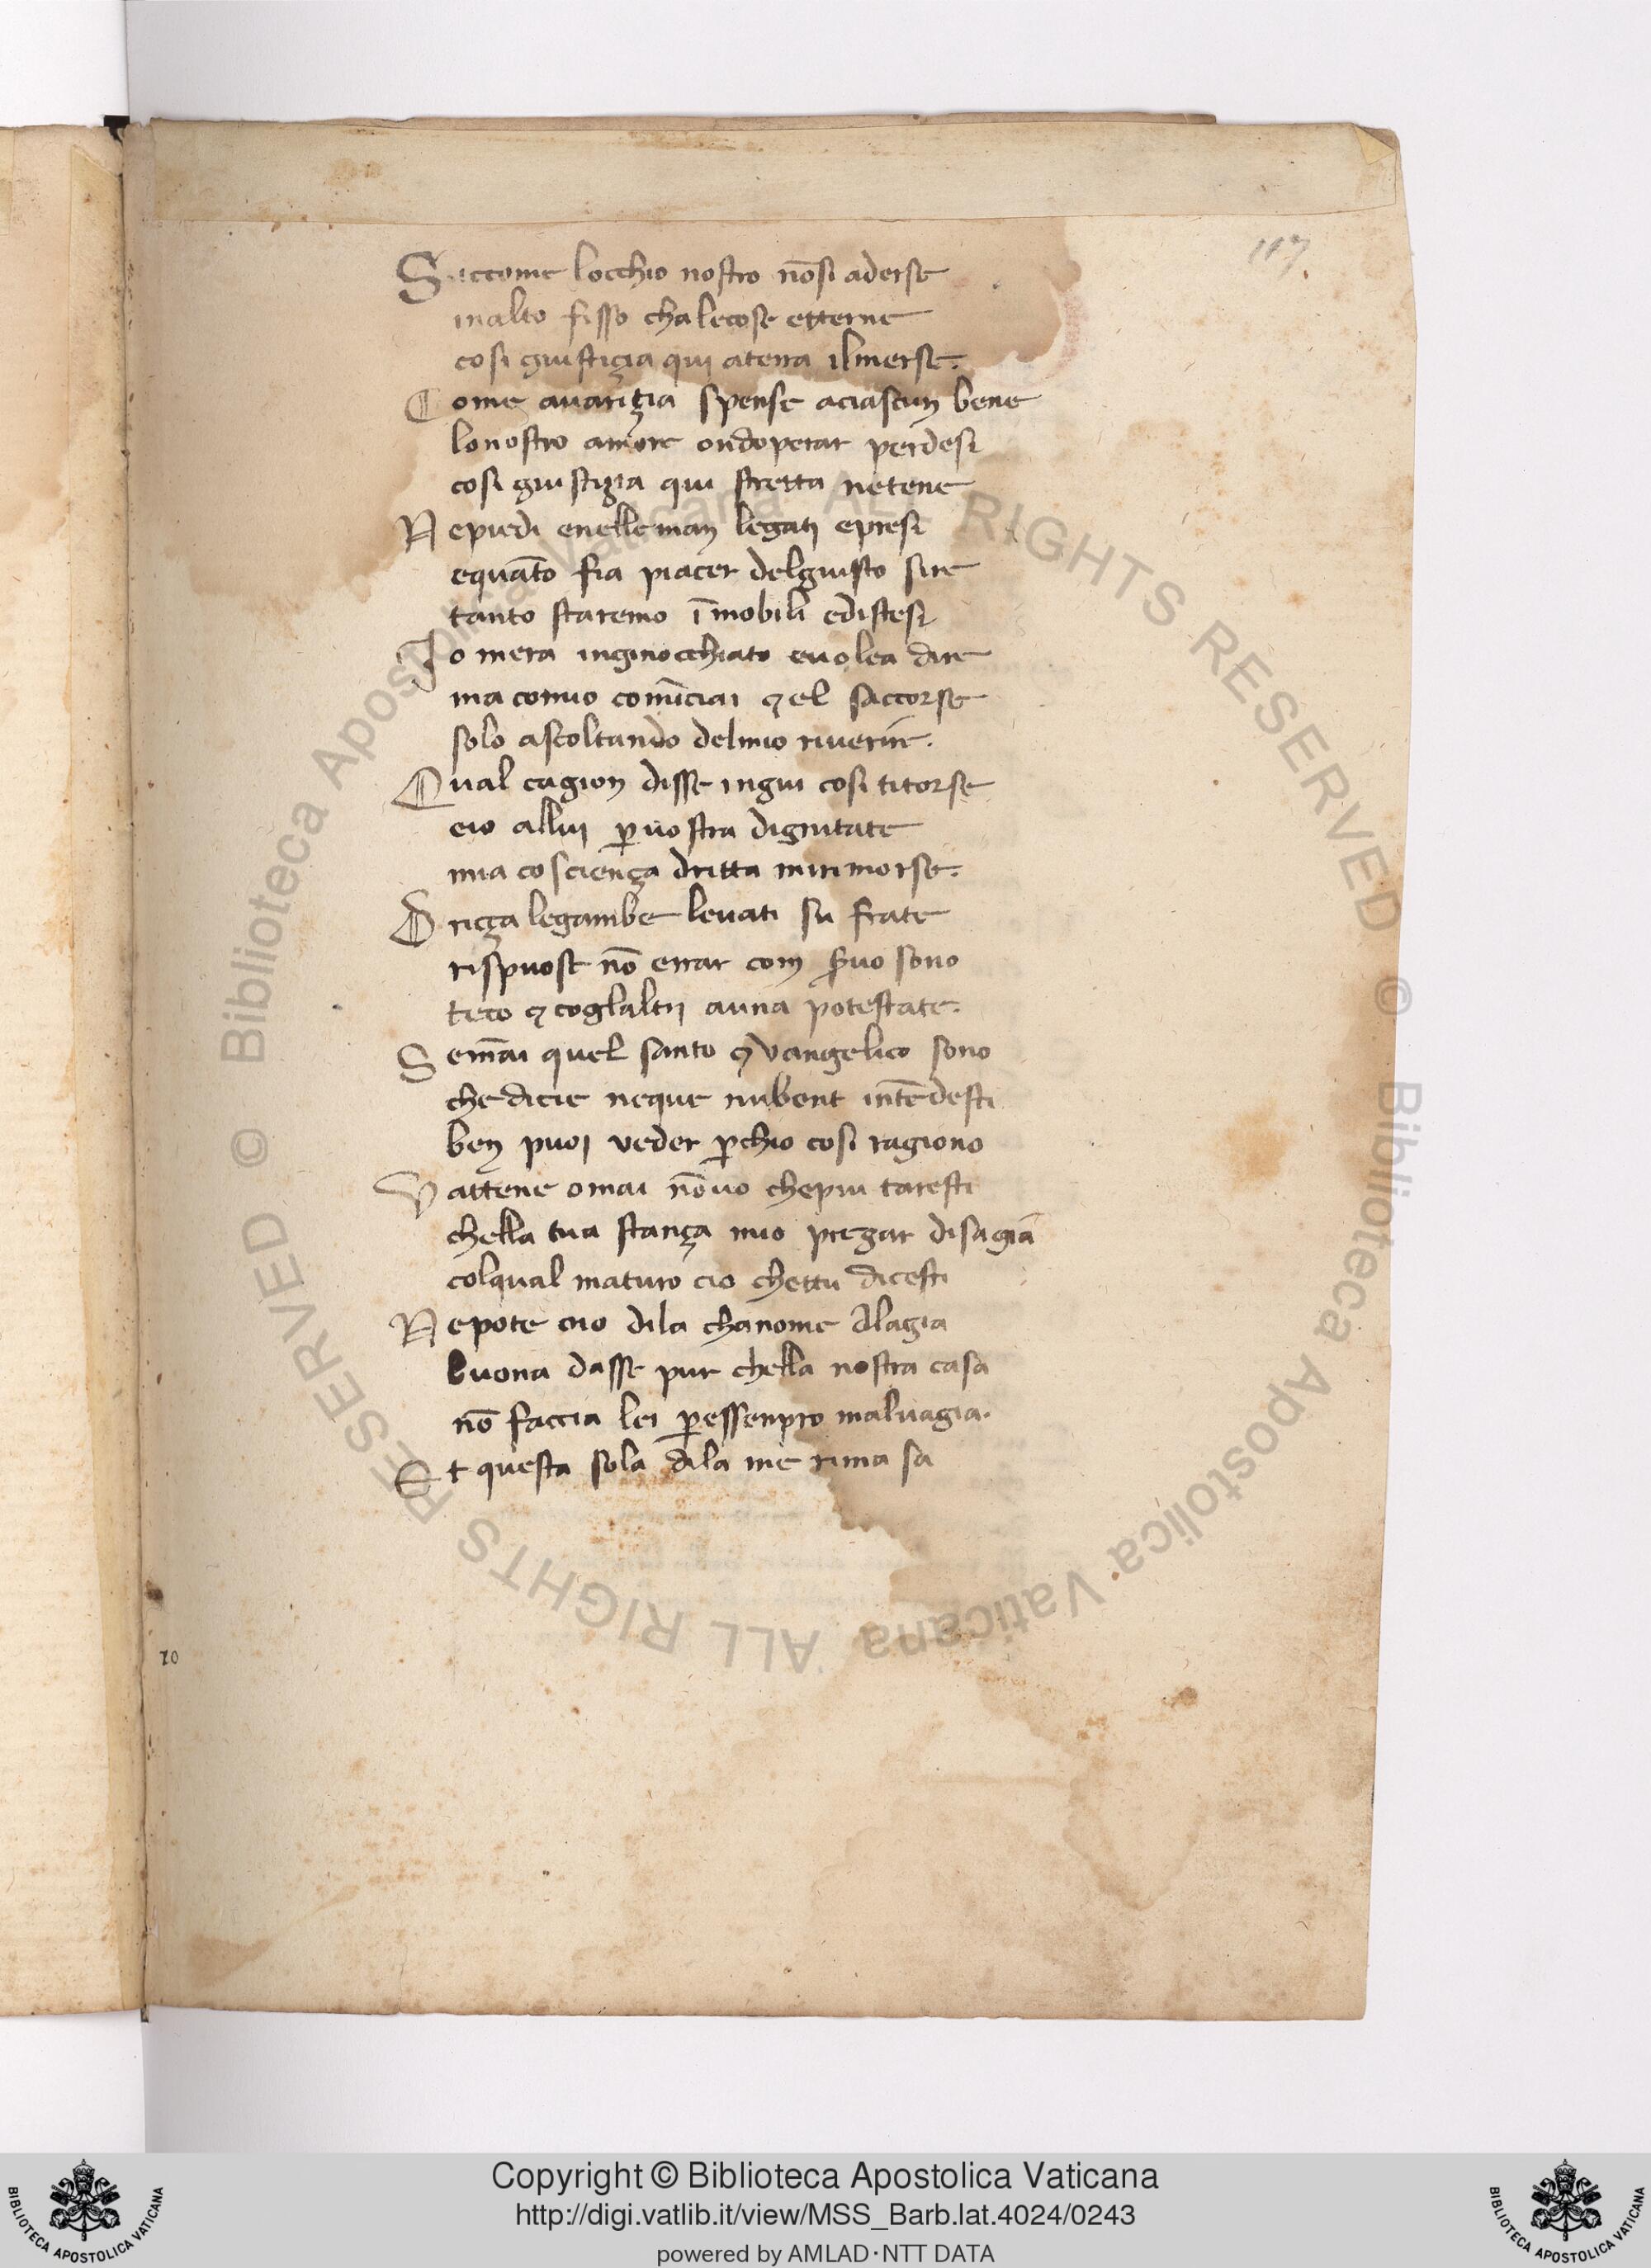 117
Siccome locchio nostro nōsi aderse
inalto fisso chalecose etterne
cosi giustiçia qui aterra ilmerse.
Come auariçia spense aciascun bene
lonostro amore ondoperar perdesi
cosi giustiçia qui stretta netene
Nepiedi enelleman legati epresi
equāto fia piacer delgiusto sire
tanto staremo īmobili edistesi
Io mera inginocchiato euolea dire
ma comio comīciai ⁊ el saccorse
solo ascoltando delmio riuerire.
Qual cagion disse ingiu cosi titorse
eio allui ꝑ uostra dignitate
mia cosciença dritta mirimorse.
Driçça legambe leuati su frate
rispuose nō errar com ẜuo sono
teco ⁊ coglaltri auna potestate.
Semāi quel santo ⁊vangelico sono
chedicie neque nubent intēdesti
ben puoi veder ꝑchio cosi ragiono
Vattene omai nōuo chepiu taresti
chella tua stança mio pregar disagiā
colqual maturo cio chettu dicesti
Nepote oio dila chanome Alagia
buona dasse pur chella nostra casa
nō faccia lei ꝑessenpro maluagia.
Et questa sola dila me rimasa
70
© Biblioteca Apostolica Vaticana ALL RIGHTS RESERVED © Biblioteca Apostolica Vaticana ALL RIGHTS RESERVED
Copyright © Biblioteca Apostolica Vaticana
http://digi.vatlib.it/view/MSS_Barb.lat.4024/0243
powered by AMLAD·NTT DATA
BIBLIOTECA APOSTOLICA VATICANA
BIBLIOTECA APOSTOLICA VATICANA